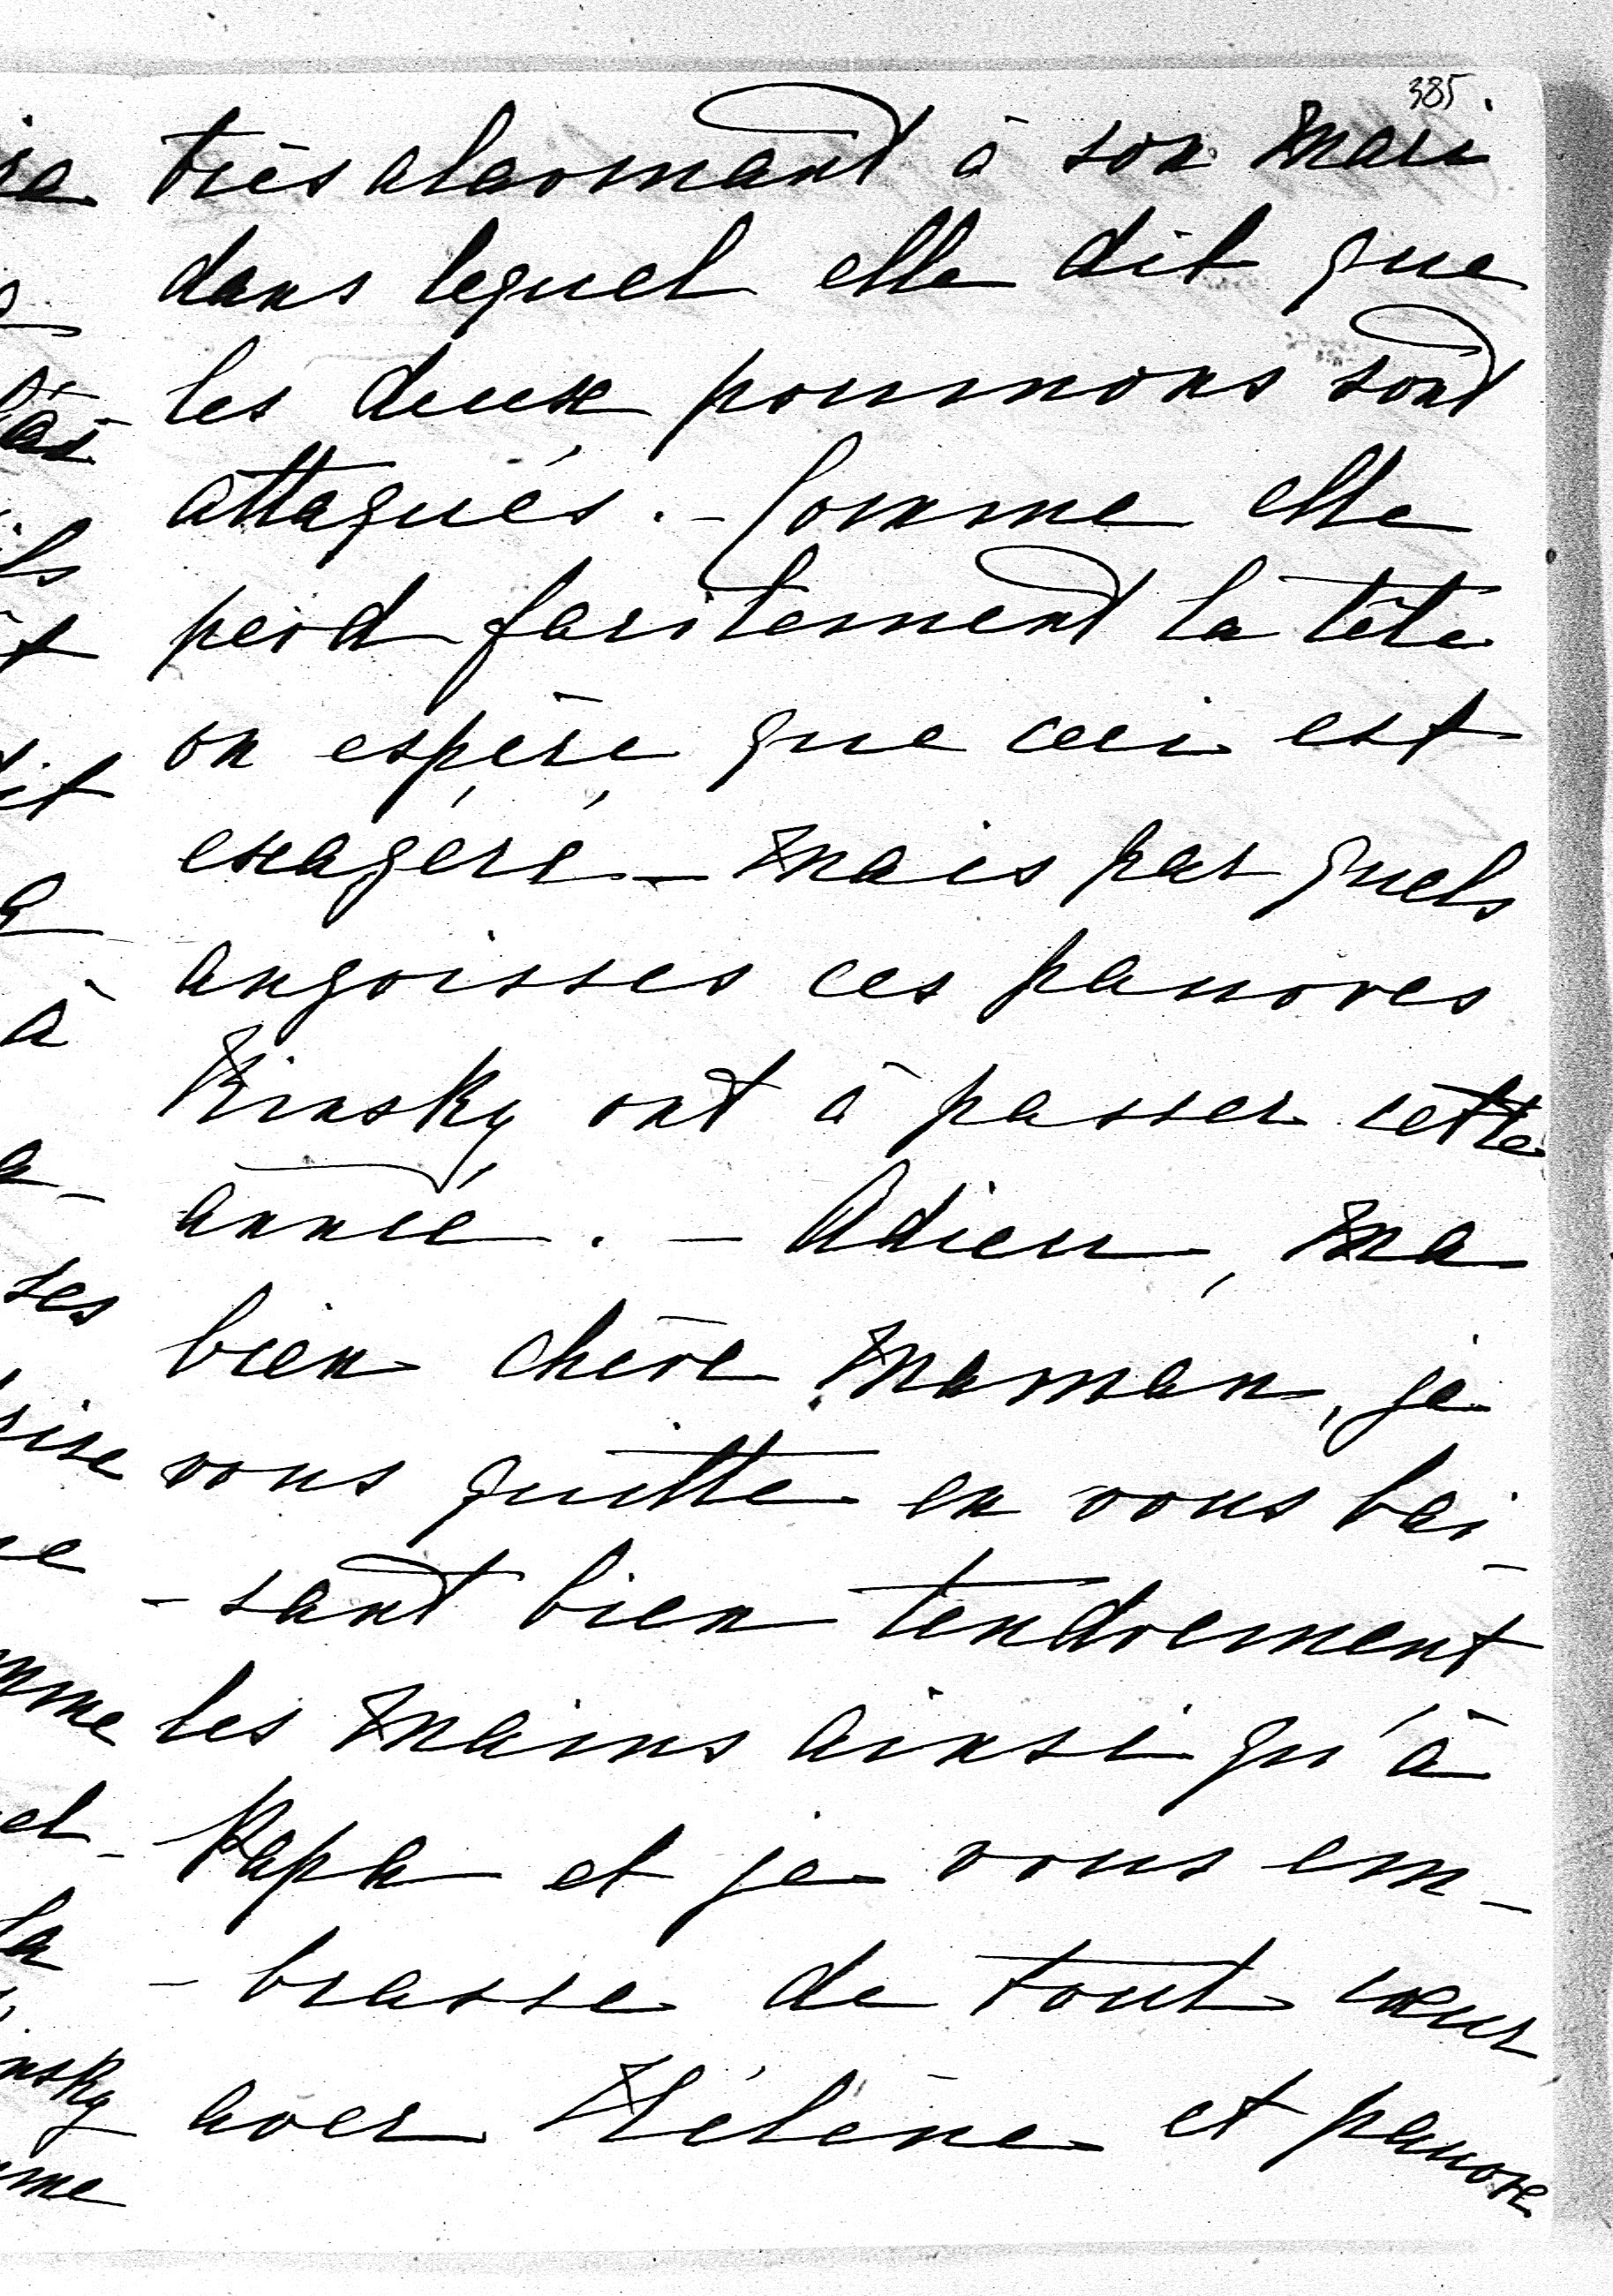 385.
très alarmant à son mari
dans lequel elle dit que
les deux poumons sont
attaqués. - Comme elle
perd facilement la tête
on espère que ceci est
exagéré - mais par quels
angoisses ces pauvres
Kinsky ont à passer cette
année. - Adieu, ma
bien chère Maman, je
vous quitte en vous bai-
-sant bien tendrement
les mains ainsi qu'à
Papa et je vous em-
-brasse de tout cœur
avec Hélène et pauvre